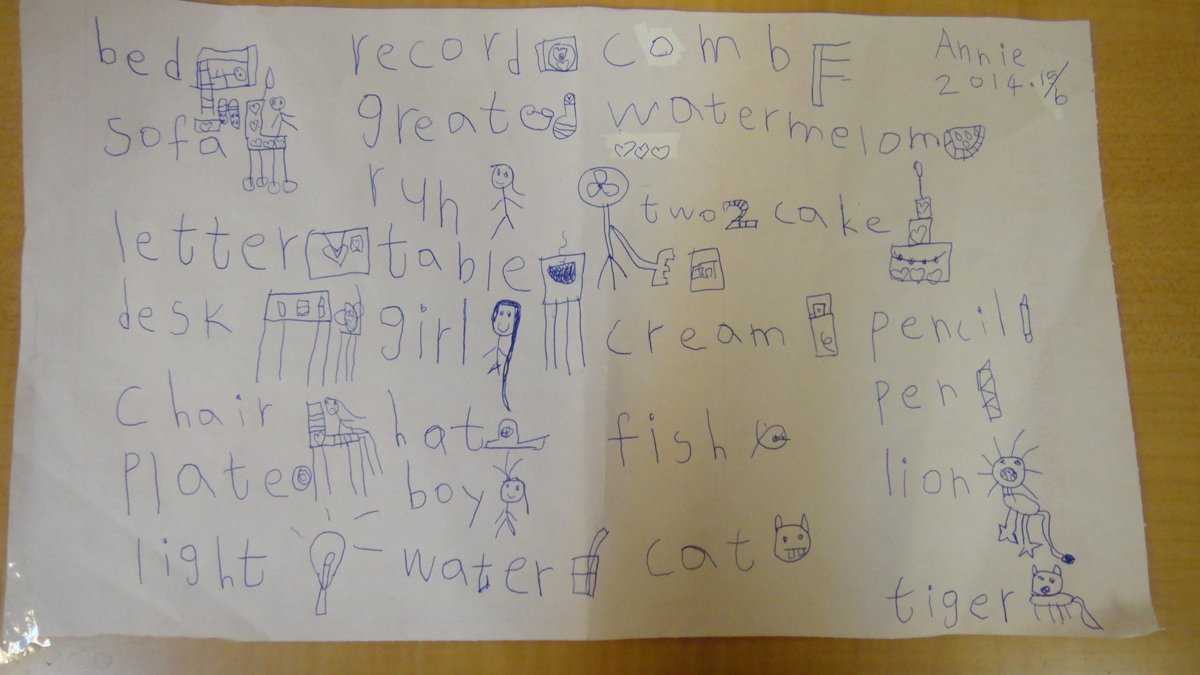 bed record comb Annie
2014.15/6
sofa great watermelom
two 2 cake
letter table
desk girl cream pencil
chair hat fish pen
plate boy lion
light water cat
tiger